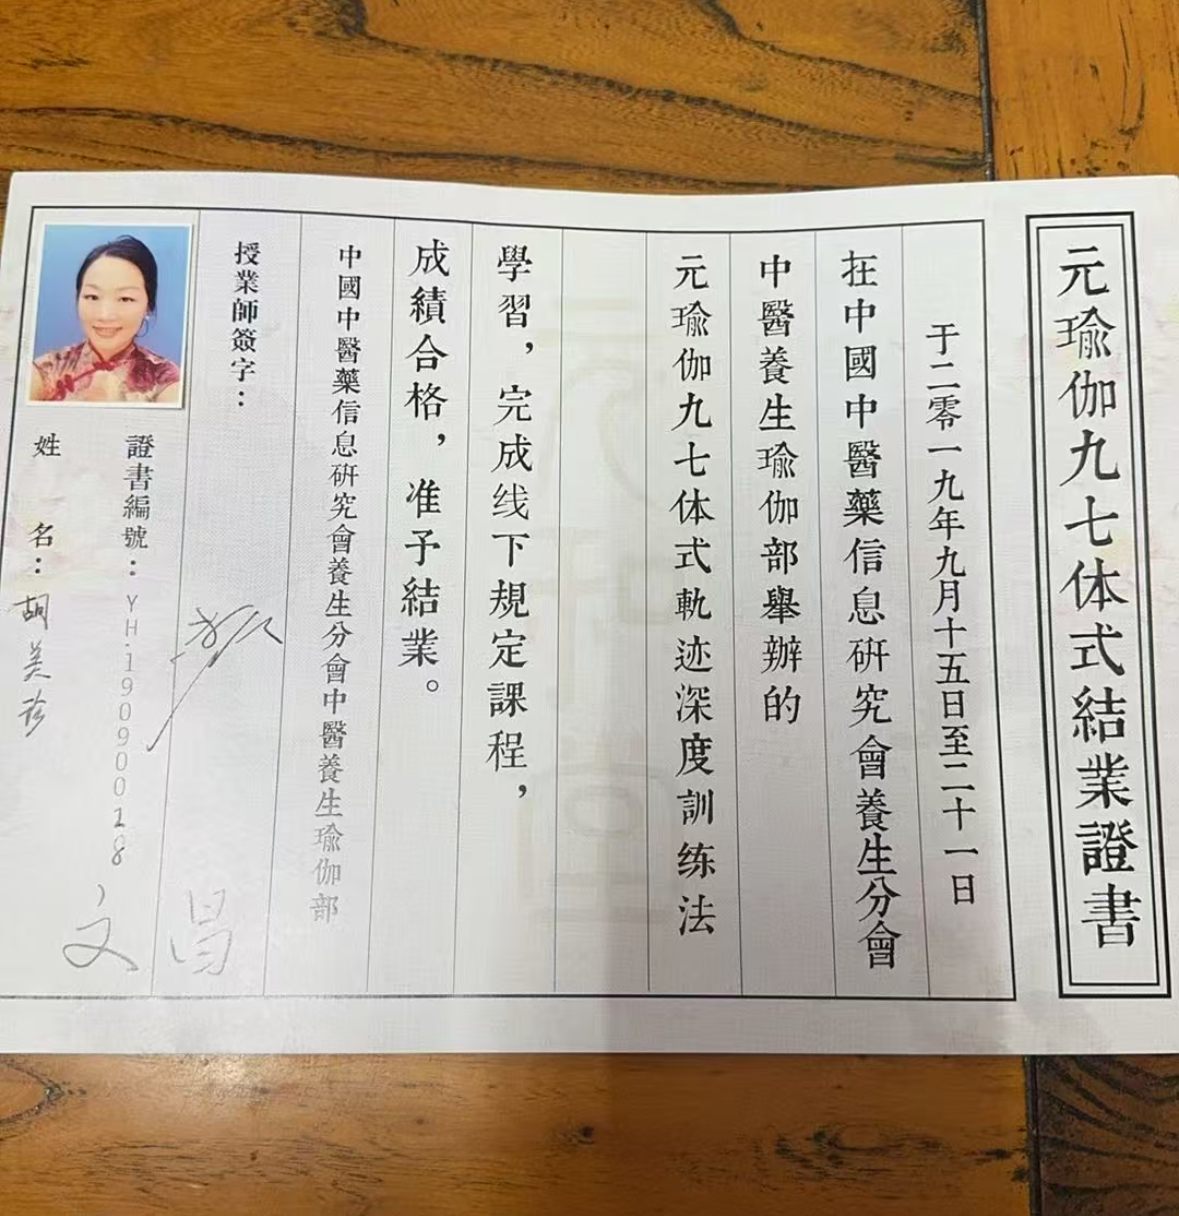 元瑜伽九七体式結業證書
于二零一九年九月十五日至二十一日
在中國中醫藥信息研究會養生分會
中醫養生瑜伽部舉辦的
元瑜伽九七体式軌迹深度訓练法
學習，完成线下規定課程，
成績合格，准予結業。
中國中醫藥信息研究會養生分會中醫養生瑜伽部
授業師簽字：
證書編號：YH.19090018
姓名：胡美珍
文昌